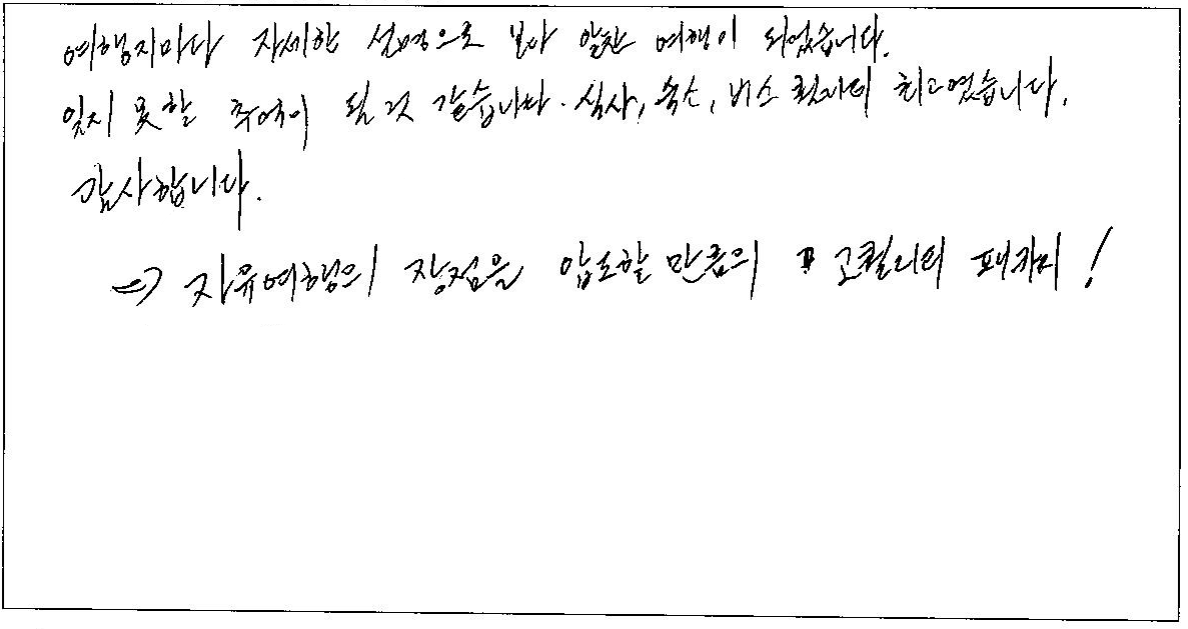 여행지마다 자세한 설명으로 보다 알찬 여행이 되었습니다.
잊지 못할 추억이 될 것 같습니다. 식사, 숙소, 버스 컨디션 최고였습니다.
감사합니다.
=> 자유여행의 장점을 압도할 만큼의 고퀄리티 패키지!